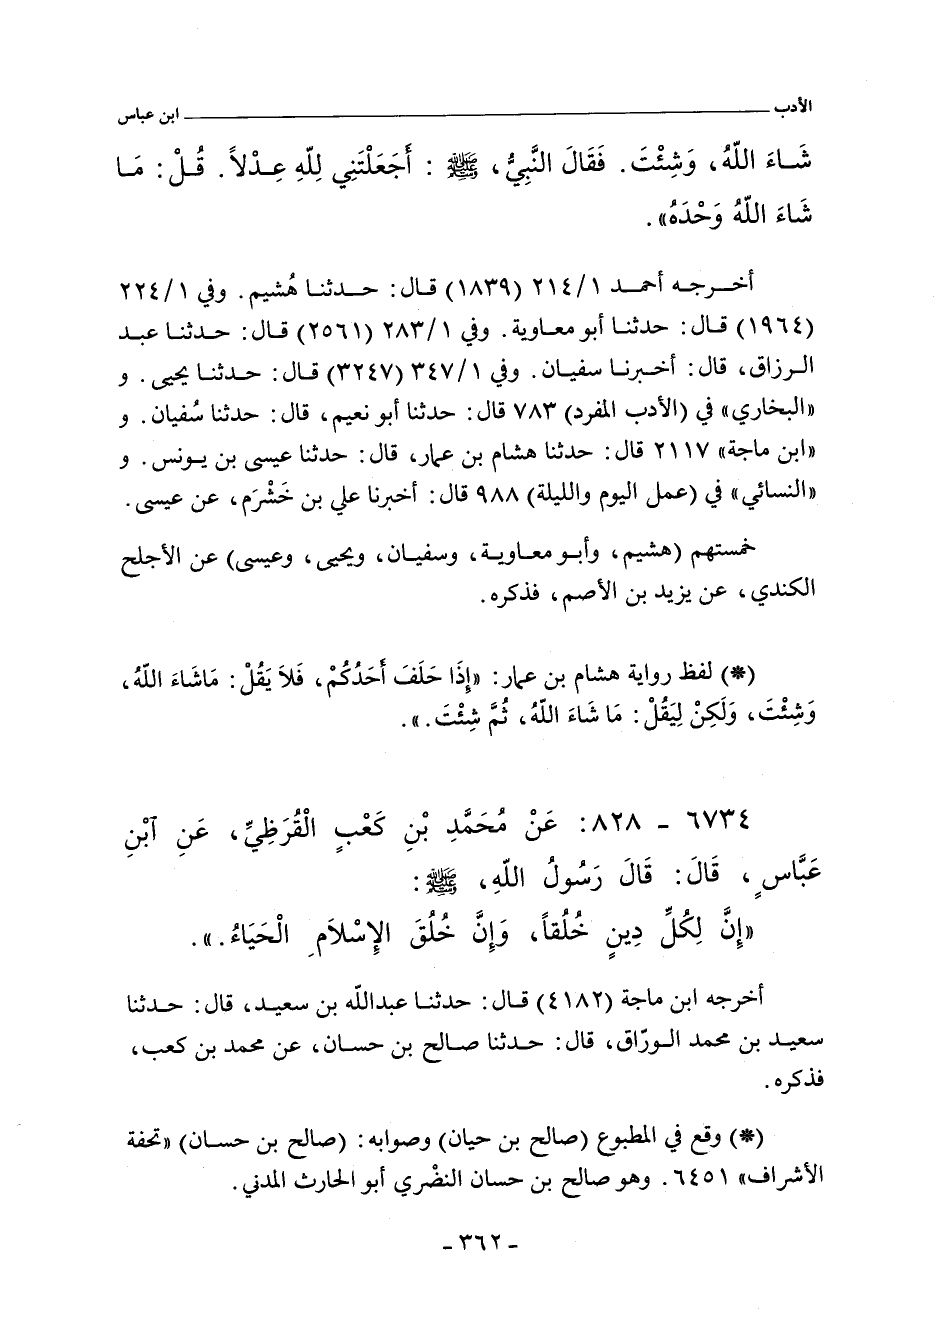 الأدب ابن عباس
شَاءَ اللّهُ، وَشِئْتَ. فَقَالَ النَّبِيُّ، ﷺ : أَجَعَلْتَنِي لِلّهِ عِدْلاً. قُلْ: مَا
شَاءَ اللّهُ وَحْدَهُ».
أخرجه أحمد ٢١٤/١ (١٨٣٩) قال: حدثنا هُشيم. وفي ٢٢٤/١
(١٩٦٤) قال: حدثنا أبو معاوية. وفي ٢٨٣/١ (٢٥٦١) قال: حدثنا عبد
الرزاق، قال: أخبرنا سفيان. وفي ٣٤٧/١ (٣٢٤٧) قال: حدثنا يحيى. و
«البخاري» في (الأدب المفرد) ٧٨٣ قال: حدثنا أبو نعيم، قال: حدثنا سُفيان. و
«ابن ماجة» ٢١١٧ قال: حدثنا هشام بن عمار، قال: حدثنا عيسى بن يونس. و
«النسائي» في (عمل اليوم والليلة) ٩٨٨ قال: أخبرنا علي بن خَشْرَم، عن عيسى.
خمستهم (هشيم، وأبو معاوية، وسفيان، ويحيى، وعيسى) عن الأجلح
الكندي، عن يزيد بن الأصم، فذكره.
(*) لفظ رواية هشام بن عمار: «إِذَا حَلَفَ أَحَدُكُمْ، فَلاَ يَقُلْ: مَاشَاءَ اللّهُ،
وَشِئْتَ، وَلَكِنْ لِيَقُلْ: مَا شَاءَ اللّهُ، ثُمَّ شِئْتَ.».
٦٧٣٤ - ٨٢٨: عَنْ مُحَمَّدِ بْنِ كَعْبٍ الْقُرَظِيِّ، عَنِ آبْنِ
عَبَّاسٍ، قَالَ: قَالَ رَسُولُ اللّهِ، ﷺ :
«إِنَّ لِكُلِّ دِينٍ خُلُقاً، وَإِنَّ خُلُقَ الإِسْلاَمِ الْحَيَاءُ.».
أخرجه ابن ماجة (٤١٨٢) قال: حدثنا عبدالله بن سعيد، قال: حدثنا
سعيد بن محمد الورّاق، قال: حدثنا صالح بن حسان، عن محمد بن كعب،
فذكره.
(*) وقع في المطبوع (صالح بن حيان) وصوابه: (صالح بن حسان) «تحفة
الأشراف» ٦٤٥١. وهو صالح بن حسان النضْري أبو الحارث المدني.
- ٣٦٢ -